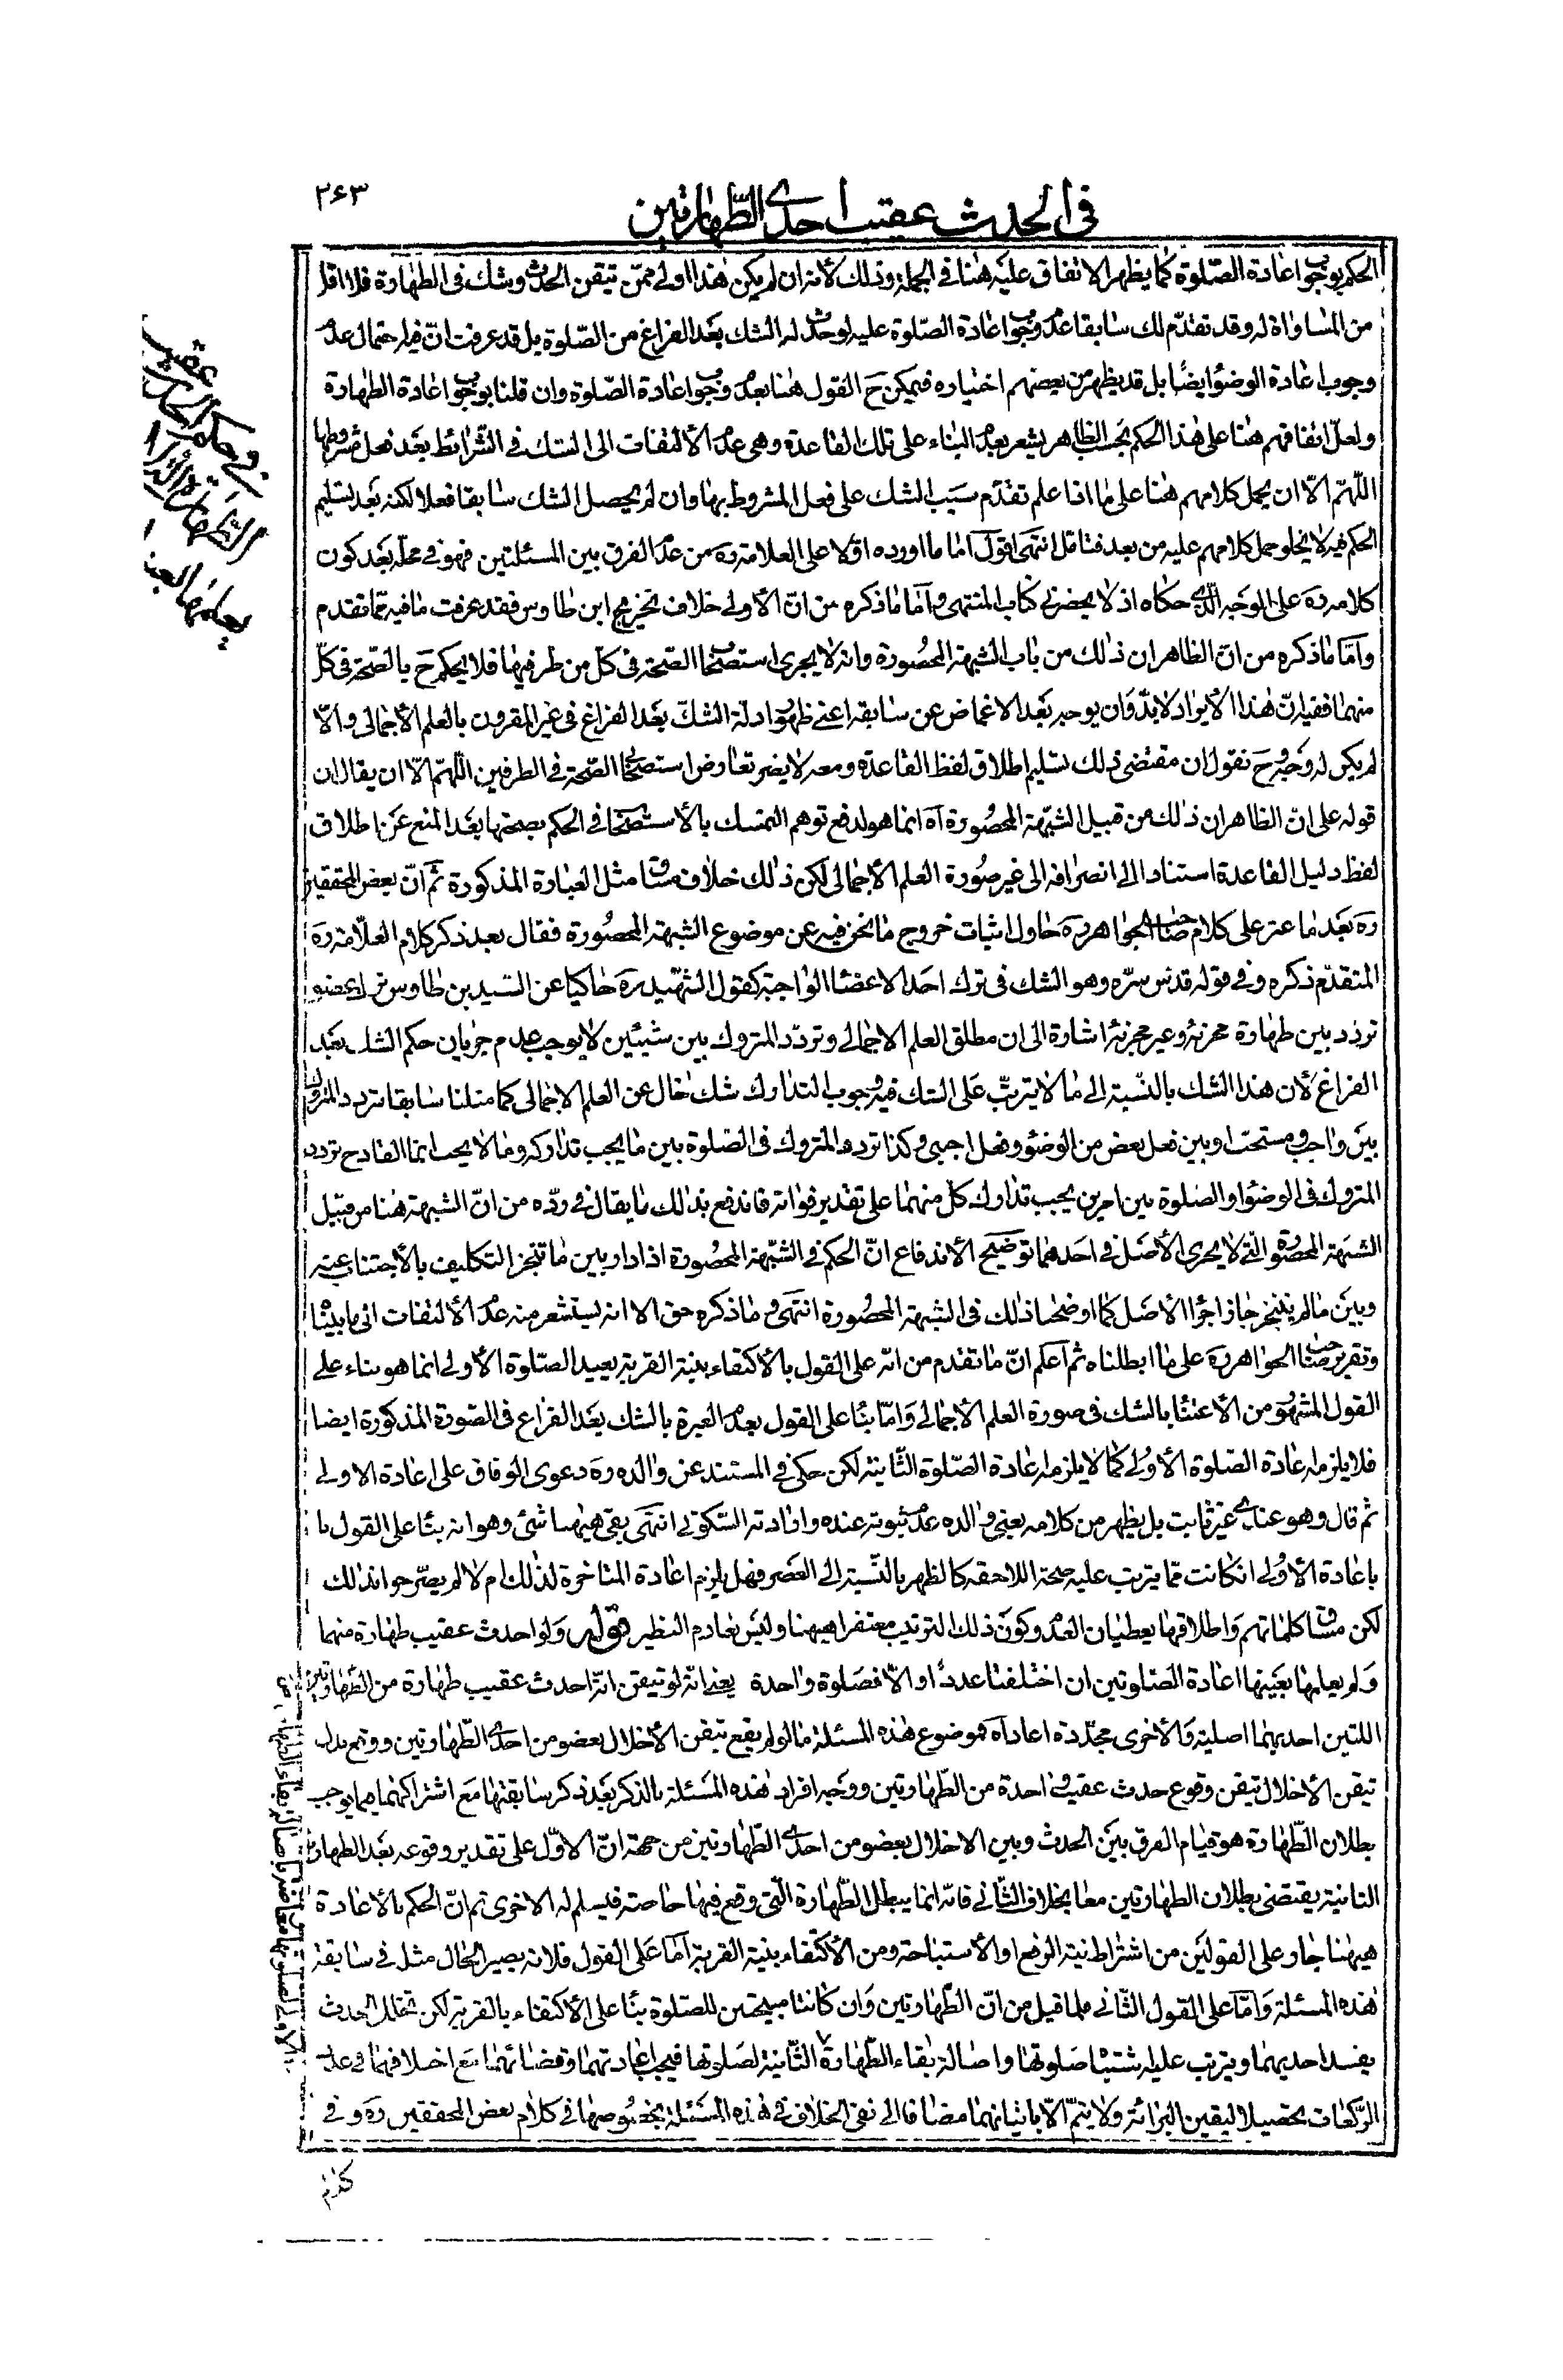 في الحدث عقيب احدى الطهارتين
٢٦٣
الحكم بوجوب اعادة الصّلوة كما يظهر الاتفاق عليه هنا في الجملة وذلك لأنه ان لم يكن هذا اولى ممّن تيقن الحدث وشك فى الطهارة فلا اقل
من المساواة له وقد تقدّم لك سابقا عدم وجوب اعادة الصّلوة عليه لو حدث له الشك بعد الفراغ من الصّلوة بل قد عرفت انّ فيه احتمال عدم
وجوب اعادة الوضوء ايضا بل قد يظهر من بعضهم اختياره فيمكن ح القول هنا بعدم وجوب اعادة الصّلوة وان قلنا بوجوب اعادة الطهارة
ولعلّ اتفاقهم هنا على هذا الحكم بحسب الظاهر يشعر بعدم البناء على تلك القاعدة وهى عدم الألتفات الى الشك فى الشّرائط بعد فعل مشروطها
اللّهمّ الّا ان يحمل كلامهم هنا على ما اذا علم تقدّم سبب الشك على فعل المشروط بها وان لم يحصل الشك سابقا فعلا لكنه بعد تسليم
الحكم فيه لا يخلو حمل كلامهم عليه من بعد فتامّل انتهى اقول امّا ما اورده اوّلا على العلامة ره من عدم الفرق بين المسئلتين فهو في محلّه بعد كون
كلامه ره على الوجه الّذى حكاه اذ لا يحضرنى كتاب المنتهى وامّا ما ذكره من انّ الأولى خلاف تخريج ابن طاوس فقد عرفت ما فيه ممّا تقدم
وامّا ما ذكره من انّ الظاهر ان ذلك من باب الشبهة المحصورة وانه لا يجرى استصحاب الصّحة فى كلّ من طرفيها فلا يحكم ح بالصّحة فى كلّ
منهما ففيه انّ هذا الأيراد لا بدّ وان يوجه بعد الاغماض عن سابقه اعنى ظهور ادلّة الشكّ بعد الفراغ فى غير المقرون بالعلم الأجمالى والّا
لم يكن له وجه وح نقول ان مقتضى ذلك تسليم اطلاق لفظ القاعدة ومعه لا يضر تعارض استصحاب الصّحة فى الطرفين اللّهمّ الّا ان يقال ان
قوله على انّ الظاهر ان ذلك من قبيل الشبهة المحصورة آه انما هو لدفع توهم التمسك بالأستصحاب فى الحكم بصحّتها بعد المنع عن اطلاق
لفظ دليل القاعدة استنادا الى انصرافه الى غير صورة العلم الأجمالى لكن ذلك خلاف مساق مثل العبارة المذكورة ثمّ انّ بعض المحققين
ره بعد ما عثر على كلام صاحب الجواهر ره حاول اثبات خروج ما نحن فيه عن موضوع الشبهة المحصورة فقال بعد ذكر كلام العلّامة ره
المتقدّم ذكره وفي قوله قدس سرّه وهو الشك فى ترك احد الاعضاء الواجبة كقول الشّهيد ره حاكيا عن السّيد بن طاوس ترك عضو
تردد بين طهارة مجزئة وغير مجزئة اشارة الى ان مطلق العلم الاجمالى وتردّد المتروك بين شيئين لا يوجب عدم جريان حكم الشك بعد
الفراغ لأن هذا الشك بالنّسبة الى ما لا يترتّب على الشك فيه وجوب التدارك شك خال عن العلم الاجمالى كما مثلنا سابقا بتردد المتروك
بين واجب ومستحب او بين فعل بعض من الوضوء وفعل اجنبى وكذا تردد المتروك فى الصّلوة بين ما يجب تداركه وما لا يجب انما القادح تردد
المتروك فى الوضوء او الصّلوة بين امرين يجب تدارك كلّ منهما على تقدير فواته فاندفع بذلك ما يقال فى ردّه من انّ الشبهة هنا من قبيل
الشبهة المحصورة التى لا يجرى الأصل فى احدهما توضيح الأندفاع انّ الحكم فى الشبهة المحصورة اذا دار بين ما تنجز التكليف بالأجتناب عنه
وبين ما لم يتنجز جاز اجراء الأصل كما اوضحنا ذلك فى الشبهة المحصورة انتهى وما ذكره حق الا انه يستشعر منه عدم الألتفات الى ما بيّنّا
وتقرير صاحب الجواهر ره على ما ابطلناه ثم اعلم انّ ما تقدم من انّه على القول بالأكتفاء بنية القربة يعيد الصّلوة الأولى انما هو بناء على
القول المشهور من الأعتناء بالشك فى صورة العلم الأجمالى وامّا بناء على القول بعدم العبرة بالشك بعد الفراغ فى الصّورة المذكورة ايضا
فلا يلزمه اعادة الصّلوة الأولى كما لا يلزمه اعادة الصّلوة الثّانية لكن حكى في المستند عن والده ره دعوى الوفاق على اعادة الاولى
ثم قال وهو عندى غير ثابت بل يظهر من كلامه يعنى والده عدم ثبوته عنده وافادته السّكونى انتهى بقى هيهنا شئ وهو انه بناء على القول با
باعادة الأولى ان كانت ممّا يترتب عليه صحة اللاحقة كالظهر بالنّسبة الى العصر فهل يلزم اعادة المتاخرة لذلك ام لا لم يصرّحوا بذلك
لكن مساق كلماتهم واطلاقها يعطيان العدم وكون ذلك الترتيب مغتفرا هيهنا وليس بعادم النظير قوله ولو احدث عقيب طهارة منهما
ولم يعلمها بعينها اعادة الصّلوتين ان اختلفتا عددا والّا فصلوة واحدة يعنى انّه لو تيقن انّه احدث عقيب طهارة من الطّهارتين
اللتين احديهما اصلية والأخرى مجدّدة اعاد آه فموضوع هذه المسئلة ما لو لم يقع تيقن الأخلال بعضو من احدى الطّهارتين ووقع بدل
تيقن الأخلال تيقن وقوع حدث عقيب واحدة من الطّهارتين ووجه افراد هذه المسئلة بالذكر بعد ذكر سابقتها مع اشتراكهما فيما يوجب
بطلان الطّهارة هو قيام الفرق بين الحدث وبين الاخلال بعضو من احدى الطّهارتين من جهة انّ الاوّل على تقدير وقوعه بعد الطهارة
الثانية يقتضى بطلان الطهارتين معا بخلاف الثّانى فانّه انما يبطل الطّهارة الّتى وقع فيها خاصة فيسلم له الاخرى ثم انّ الحكم بالأعادة
هيهنا جار على القولين من اشتراط نية الرفع او الأستباحة ومن الأكتفاء بنية القربة امّا على القول فلانه يصير الحال مثل فى سابقة
هذه المسئلة وامّا على القول الثّانى فلما قيل من انّ الطّهارتين وان كانتا مبيحتين للصّلوة بناء على الأكتفاء بالقربة لكن تخلل الحدث
يفسد احديهما ويترتب عليه اشتباه صلوتها واصالة بقاء الطّهارة الثّانية لصلوتها فيجب اعادتهما وقضائهما مع اختلافهما فى عدد
الرّكعات تحصيلا ليقين البرائة ولا يتمّ الّا باتيانهما مضافا الى نفى الخلاف فى هذه المسئلة بخصوصها فى كلام بعض المحققين ره وفى
كلام
في حكم الحدث عقيب